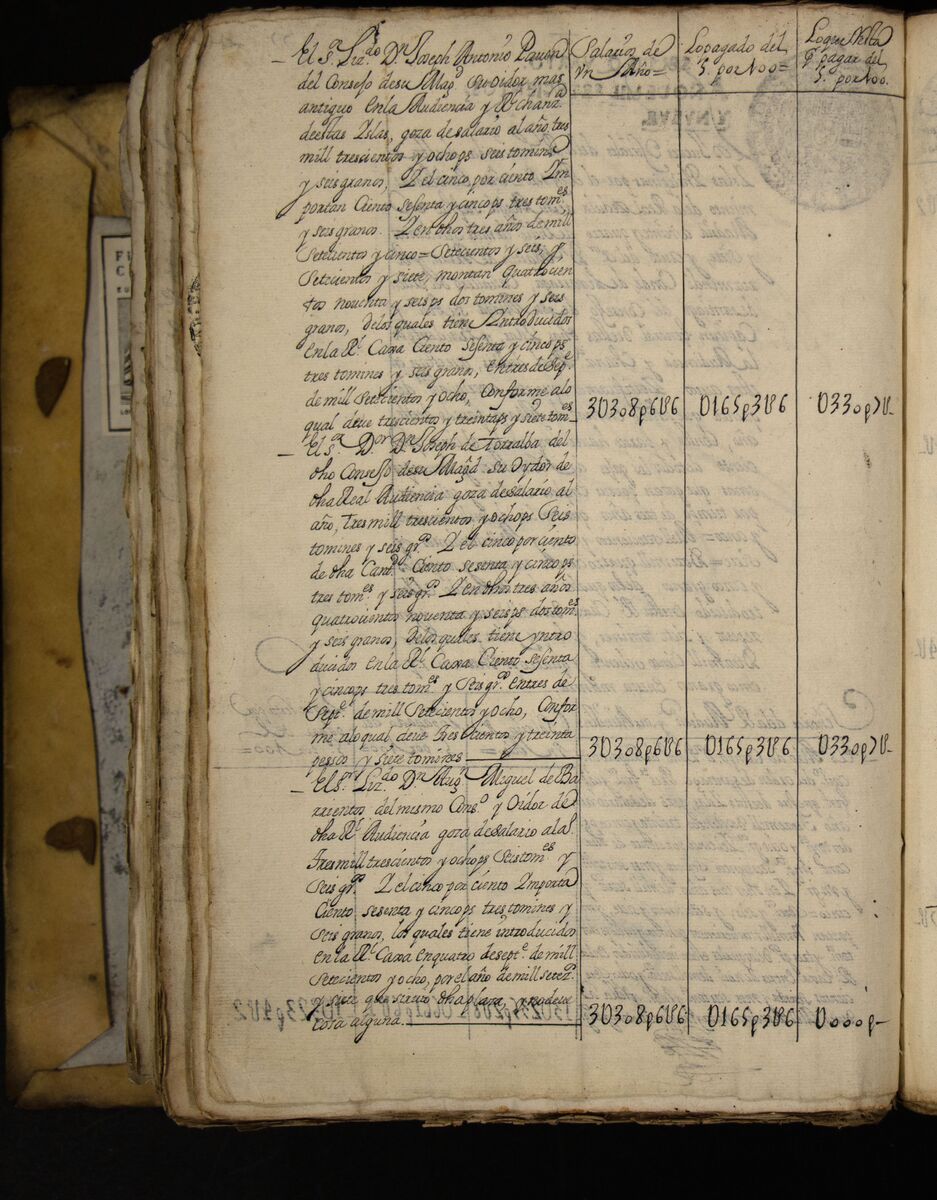 Salarios de
Vn Año=
Lo pagado del
5. por 100=
Lo que resta
q̃ pagar del
5. por 100.
— El Sr. Lizdo. Dn. Joseph Antonio Pavon
del Consejo de su Magd. su Oidor mas
antiguo en la Audiencia y Rl. Chanzª
de estas Yslas, goza de salario al año, tres
mill trescientos y ocho ps seis tomines
y seis granos, Y el cinco por ciento Ym
portan Ciento sesenta y cinco ps tres tomes.
y seis granos. Y en dhos tres años de mill
setecientos y cinco= setecientos y seis, y,
setecientos y siete, montan quatrocien
tos noventa y seis ps dos tomines y seis
granos, de los quales tiene Yntroducidos
en la Rl. Caxa Ciento sesenta y cinco ps
tres tomines y seis granos, en tres de Sepe.
de mill setecientos y ocho, Conforme a lo
qual deve trescientos y treinta ps y siete tomes.
3U308p6U6
U165p3U6
U330p7U-
— El Sr. Dor. Dn. Joseph de Torralba del
dho Consejo de su Magd. su Oydor de
dha Real Audiencia goza de salario al
año, tres mill trescientos, y ocho ps seis
tomines y seis grs. Y el cinco por ciento
de dha Cantd. Ciento sesenta y cinco ps
tres tomes. y seis grs. Y en dhos tres años
quatrocientos noventa y seis ps dos tomes.
y seis granos, de los quales tiene yntro
ducidos en la Rl. Caxa Ciento sesenta
y cinco ps tres tomes. y seis grs. en tres de
Septe. de mill setecientos y ocho, Confor
me a lo qual deve tres cientos y treinta
pesos y siete tomines
3U308p6U6
U165p3U6
U330p7U-
— El Sr. Liz.do Dn. Augn. Miguel de Ba
rrientos del mismo Conso. y Oidor de
dha Rl. Audiencia goza de salario al aº.
tres mill trescientos y ocho ps seis tomes. y
seis grs. Y el cinco por ciento Ymporta
Ciento sesenta y cinco ps tres tomines y
seis granos, los quales tiene introducidos
en la Rl. Caxa en quatro de septe. de mill
setecientos y ocho, por el año de mill setezs.
y siete que sirvio dha plaza, y no deve
cosa alguna.
3U308p6U6
U165p3U6
U000p-